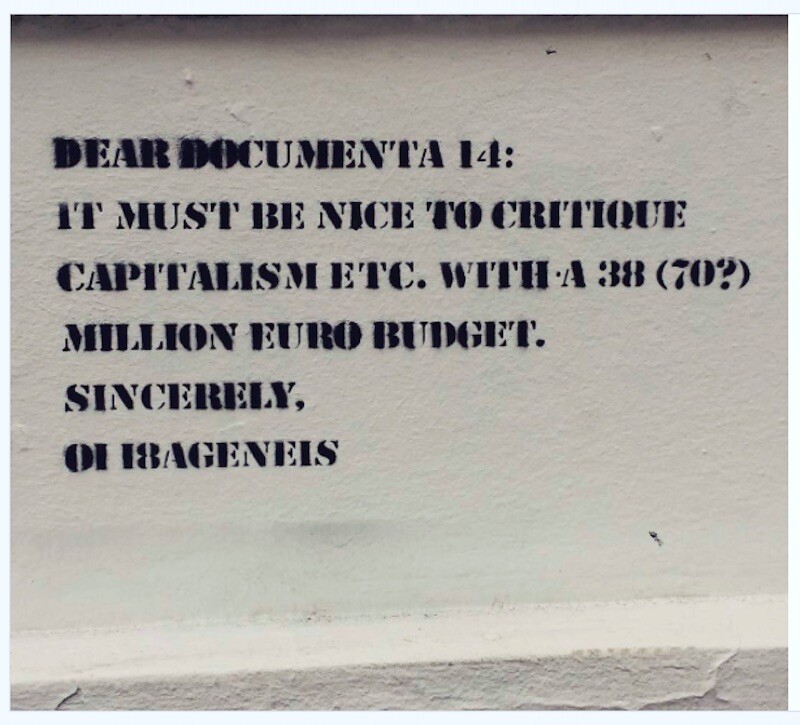 DEAR DOCUMENTA 14:
IT MUST BE NICE TO CRITIQUE
CAPITALISM ETC. WITH A 38 (70?)
MILLION EURO BUDGET.
SINCERELY,
OI I8AGENEIS